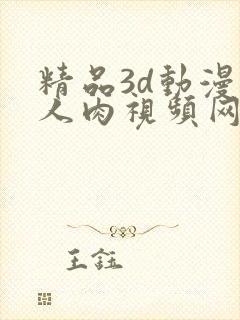 精品3d動漫
人肉視頻网
王鈺